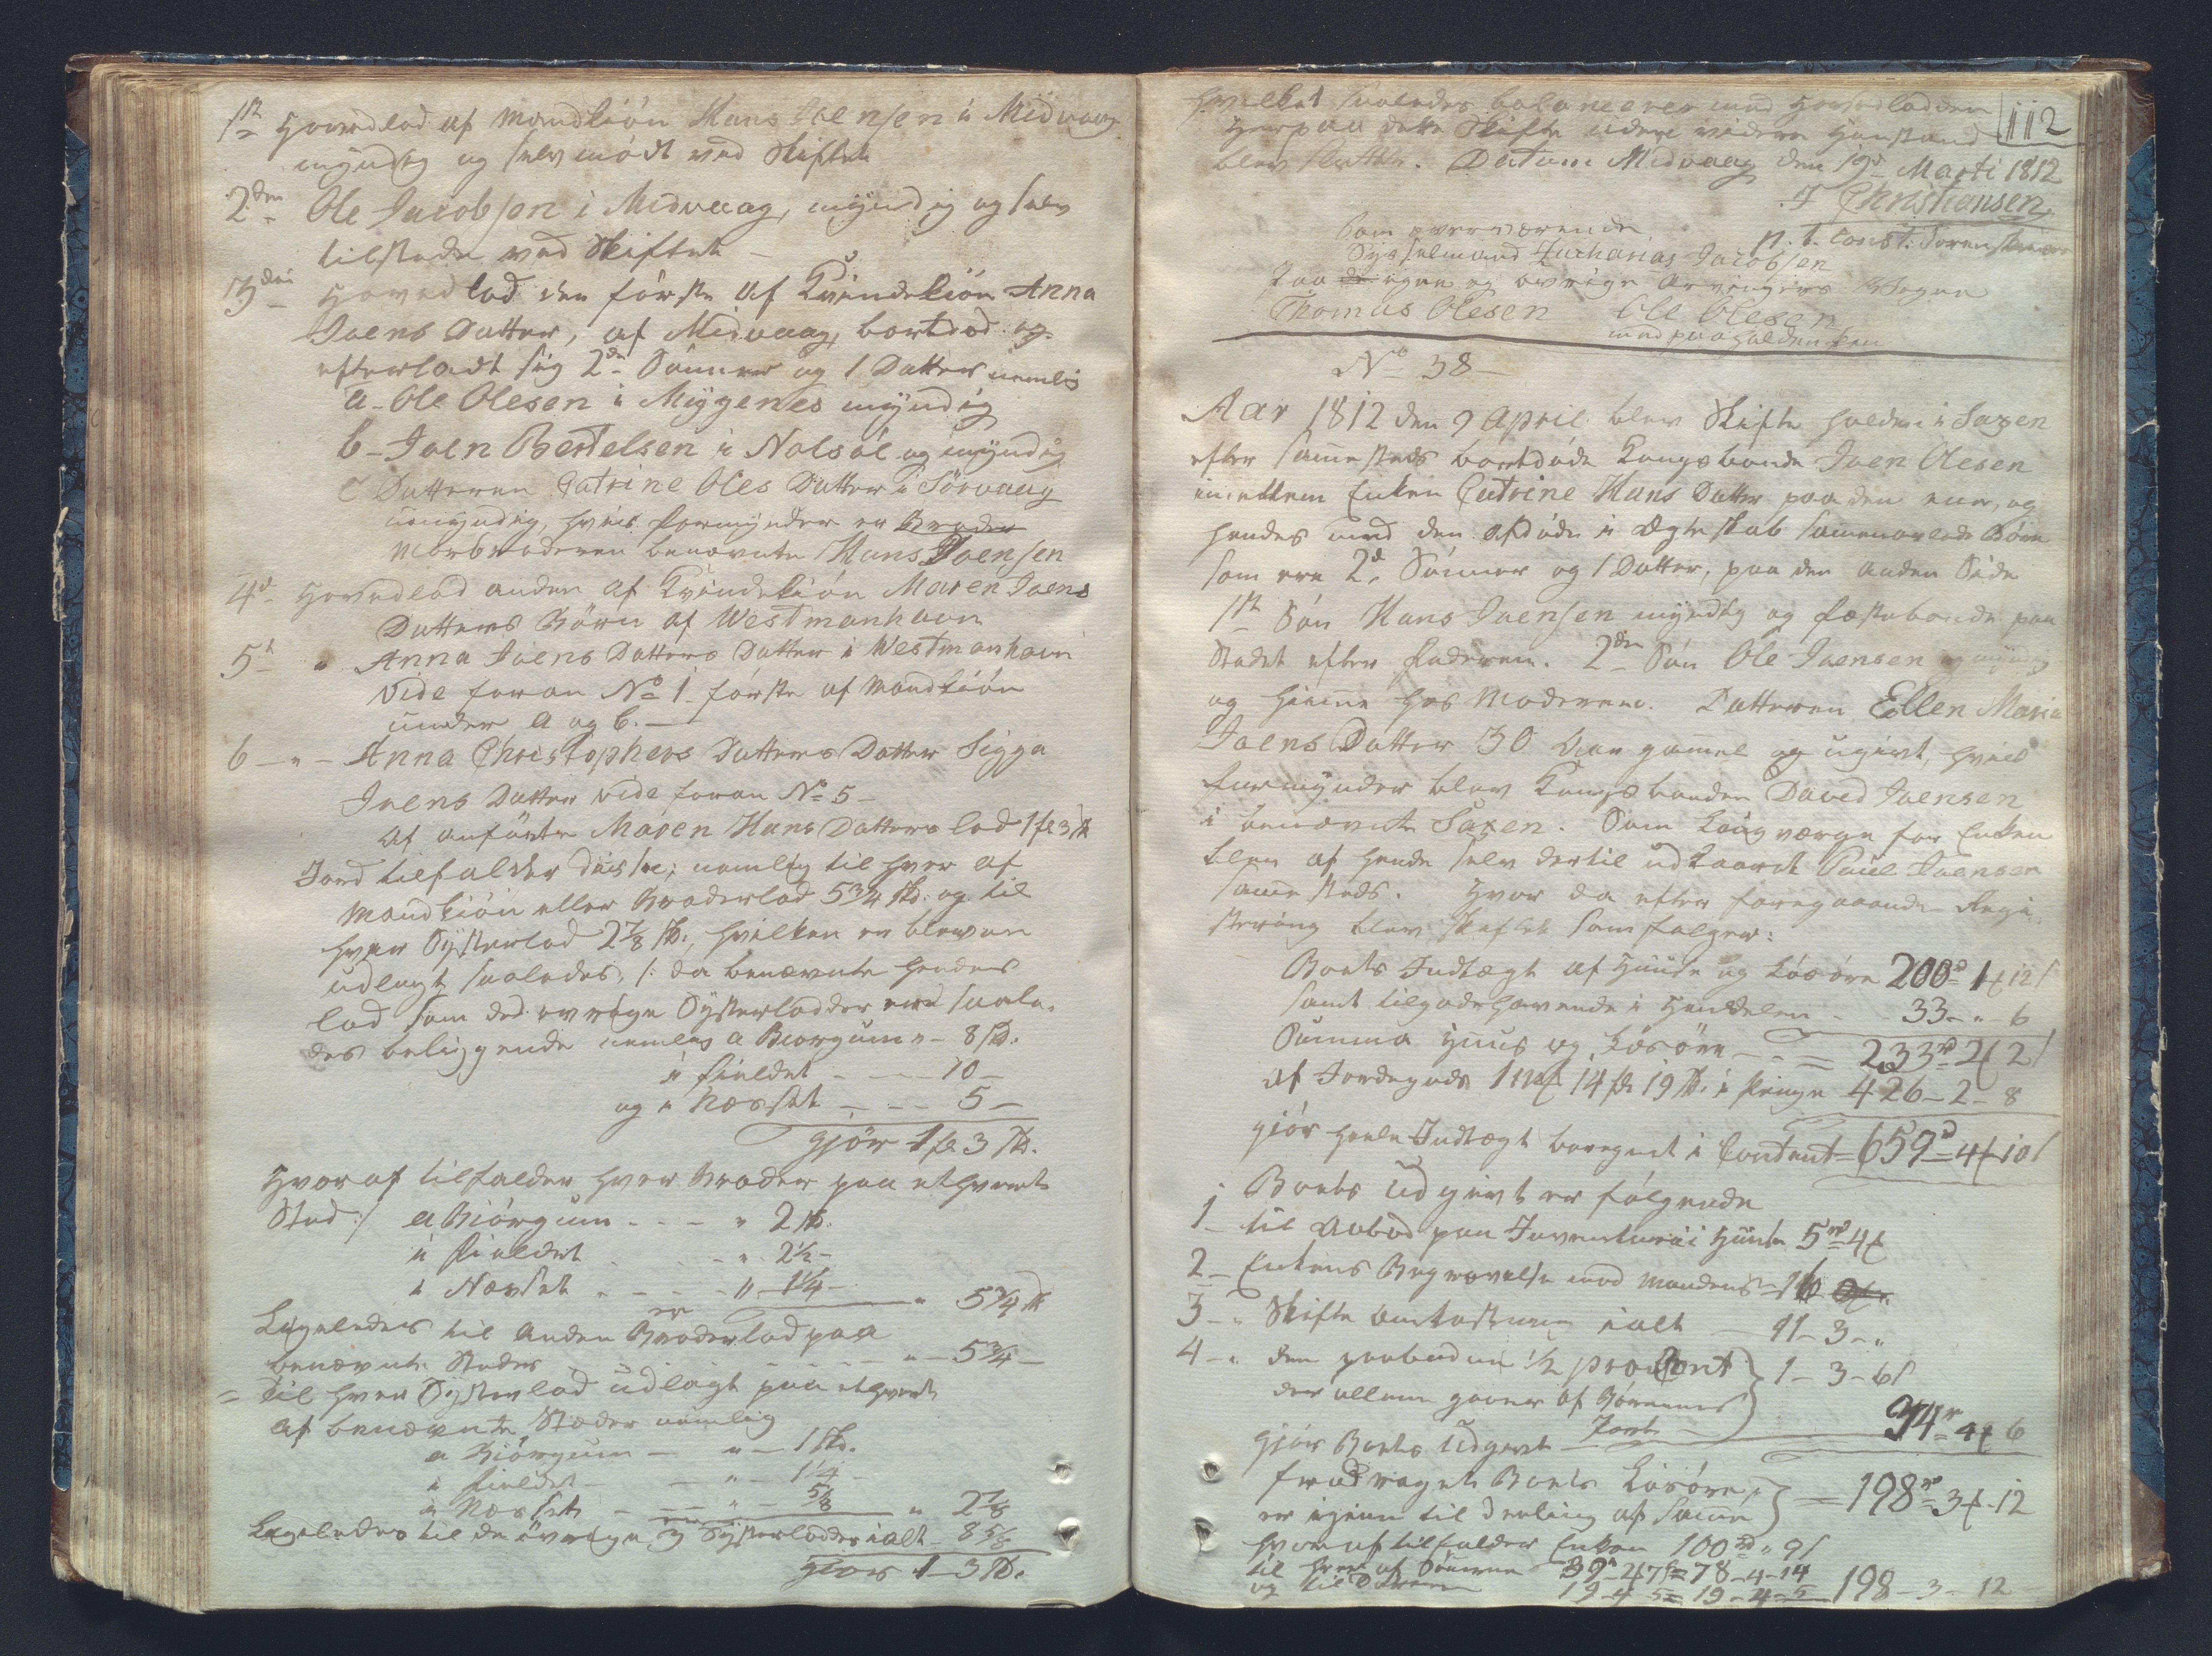 1ste Hovedlod af Mandkiön Hans Joensen i Midvaag
myndig og selv mödt ved Skiftet
2den Ole Jacobsen i Midvaag, myndig og selv
tilstede ved Skiftet
3die Hovedlod den förste af Qvindekiön Anna
Joens Datter, af Midvaag, bortdöd og
efterladt sig 2de Sönner og 1 Datter nemlig
a - Ole Olesen i Myggenes myndig
b - Joen Bertelsen i Nolsöe og myndig
c Datteren Catrine Oles Datter i Sörvaag
umyndig, hvis Formynder er Broder
Morbroderen benævnte Hans Joensen
4de Hovedlod anden af Qvindekiön Maren Joens
Datters Börn af Westmanhavn
5te " Anna Joens Datters Datter i Westmanhavn
vide foran No 1 förste af Mandkiön
under a og b. —
6 — " — Anna Christophers Datters Datter Sigga
Joens Datter vide foran No 5 —
Af anförte Maren Hans Datters lod 1 fl 3 sk
Jord tilfalder disse, nemlig til hver af
Mandkiön eller Broderlod 5 3/4 sk. og til
hver Sÿsterlod 2 7/8 sk., hvilken er bleven
udlagt saaledes, /: da benævnte hendes
lod som ded övrige Sÿsterlodder ere saale-
des beliggende nemlig a Biorgum " - 8 sk.
i fieldet - - - 10 —
og i Næsset - - - 5 —
Gjör 1 fl 3 sk.
Hvoraf tilfalder hver Broder paa ethvert
Sted :/ a Biörgum - - - " 2 sk.
i fieldet - - " 2 1/2 —
i Næsset - - - " 1 1/4 —
er " 5 3/4 sk
Ligeledes til anden Broderlod paa
benævnte Steder - - - - - " - 5 3/4 —
= til hver Sÿsterlod udlagt paa ethvert
af benævnte Stæder nemlig
a Biörgum — " — 1 sk.
i fieldet — " — 1 1/4 —
i Næsset — " — 5/8 " 2 7/8
Ligeledes til de övrige 3 Sÿsterlodder ialt - 8 5/8
Gior 1 - 3 sk.
hvilket saaledes balancerer med Hovedlodden
Herpaa dette Skifte uden videre Henstand
blev sluttet. Datum Midvaag den 19d Marti 1812
112
J Christiansen
p. t. const. Sorenskriver
Som overværende
Sysselmand Zacharias Jacobsen
Paa egne og övrige Arvingers Vegne
Thomas Olesen Ole Olesen
med paaholden Pen
No 38 —
Aar 1812 den 9 April blev Skifte holden i Saxen
efter sammesteds bortdöde Kongsbonde Joen Olesen
imellem Enken Catrine Hans Datter paa den ene, og
hendes med den afdöde i Ægteskab sammenavlede Börn
som ere 2de Sönner og 1 Datter, paa den anden Side
1ste Sön Hans Joensen myndig og fæstebonde paa
Stedet efter Faderen. 2den Sön Ole Joensen myndig
og hiemme hos Moderen. Datteren Ellen Maria
Joens Datter 30 Aar gammel og ugivt, hvis
Formynder blev Kongsbonden David Joensen
i benævnte Saxen. Som Laugværge for Enken
blev af hende selv dertil udkaaret Poul Joensen
sammesteds. Hvor da efter foregaaende Regi-
strering blev skiftet som fölger:
Boets Indtægt af Huuse og Lösöre 200rd 1 12 s
samt tilgodehavende i Handelen - 33 - " 6
Summa Huus og Lösöre - - = 233rd 2 2 s
af Jordegods 1 mk 14 fl 19 sk. i Penge 426 - 2 - 8
giör heele Indtægt beregnet i Contant = 659d 4 10 s
Boets Udgivt er fölgende
1 — til Aabod paa Inventarii Huuse 5rd 4
2 — Enkens Begravelse mod Mandens - 16
3 — " Skifte Omkostning ialt — 11 - 3 - "
4 — " den paabudne 1/2 proCent } 1 - 3 - 6 s
der allene gaaer af Börnenes
Jord
giör Boets Udgivt - 34r 4 6
fradraget Boets Lösöre, } = 198rd 3 - 12
er igien til Deeling af samme
Hvoraf tilfalder Enken 100rd " 9 s
til hver af Sönnerne 39 - 2 7 s = 78 - 4 - 14
og til Datteren 19 - 4 5 = 19 - 4 - 5 198 - 3 - 12